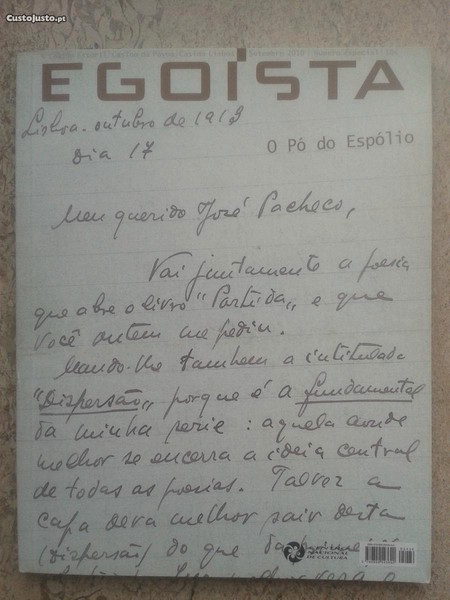 CustoJusto.pt
EGOÍSTA
Lisboa. outubro de 1913
Dia 17
O Pó do Espólio
Meu querido José Pacheco,
Vai juntamente a poesia
que abre o livro "Partida" e que
você ontem me pediu.
Mando-lhe tambem a intitulada
"Dispersão" porque é a fundamental
da minha serie: aquela aonde
melhor se encerra a ideia central
de todas as poesias. Talvez a
capa deva melhor sair desta
(Dispersão) do que da
DE CULTURA